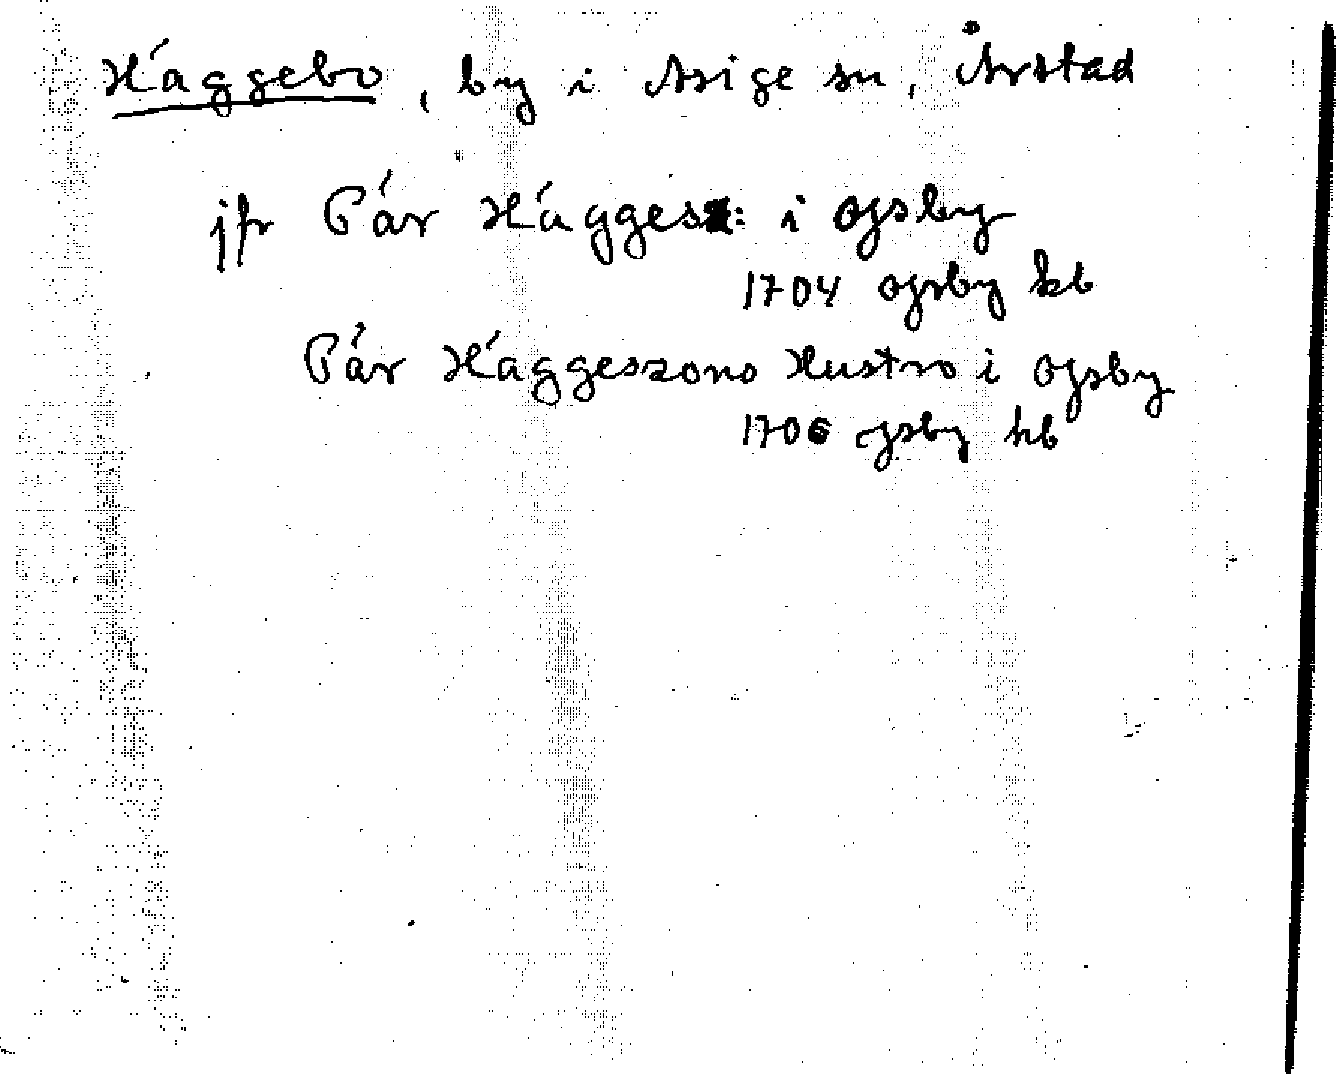 Häggebo, by i Asige sn, Årstad
jfr Pär Hägges: i Ojsby
1704 Ojsby kb
Pär Häggeszono Hustro i Ojsby
1706 Ojsby kb